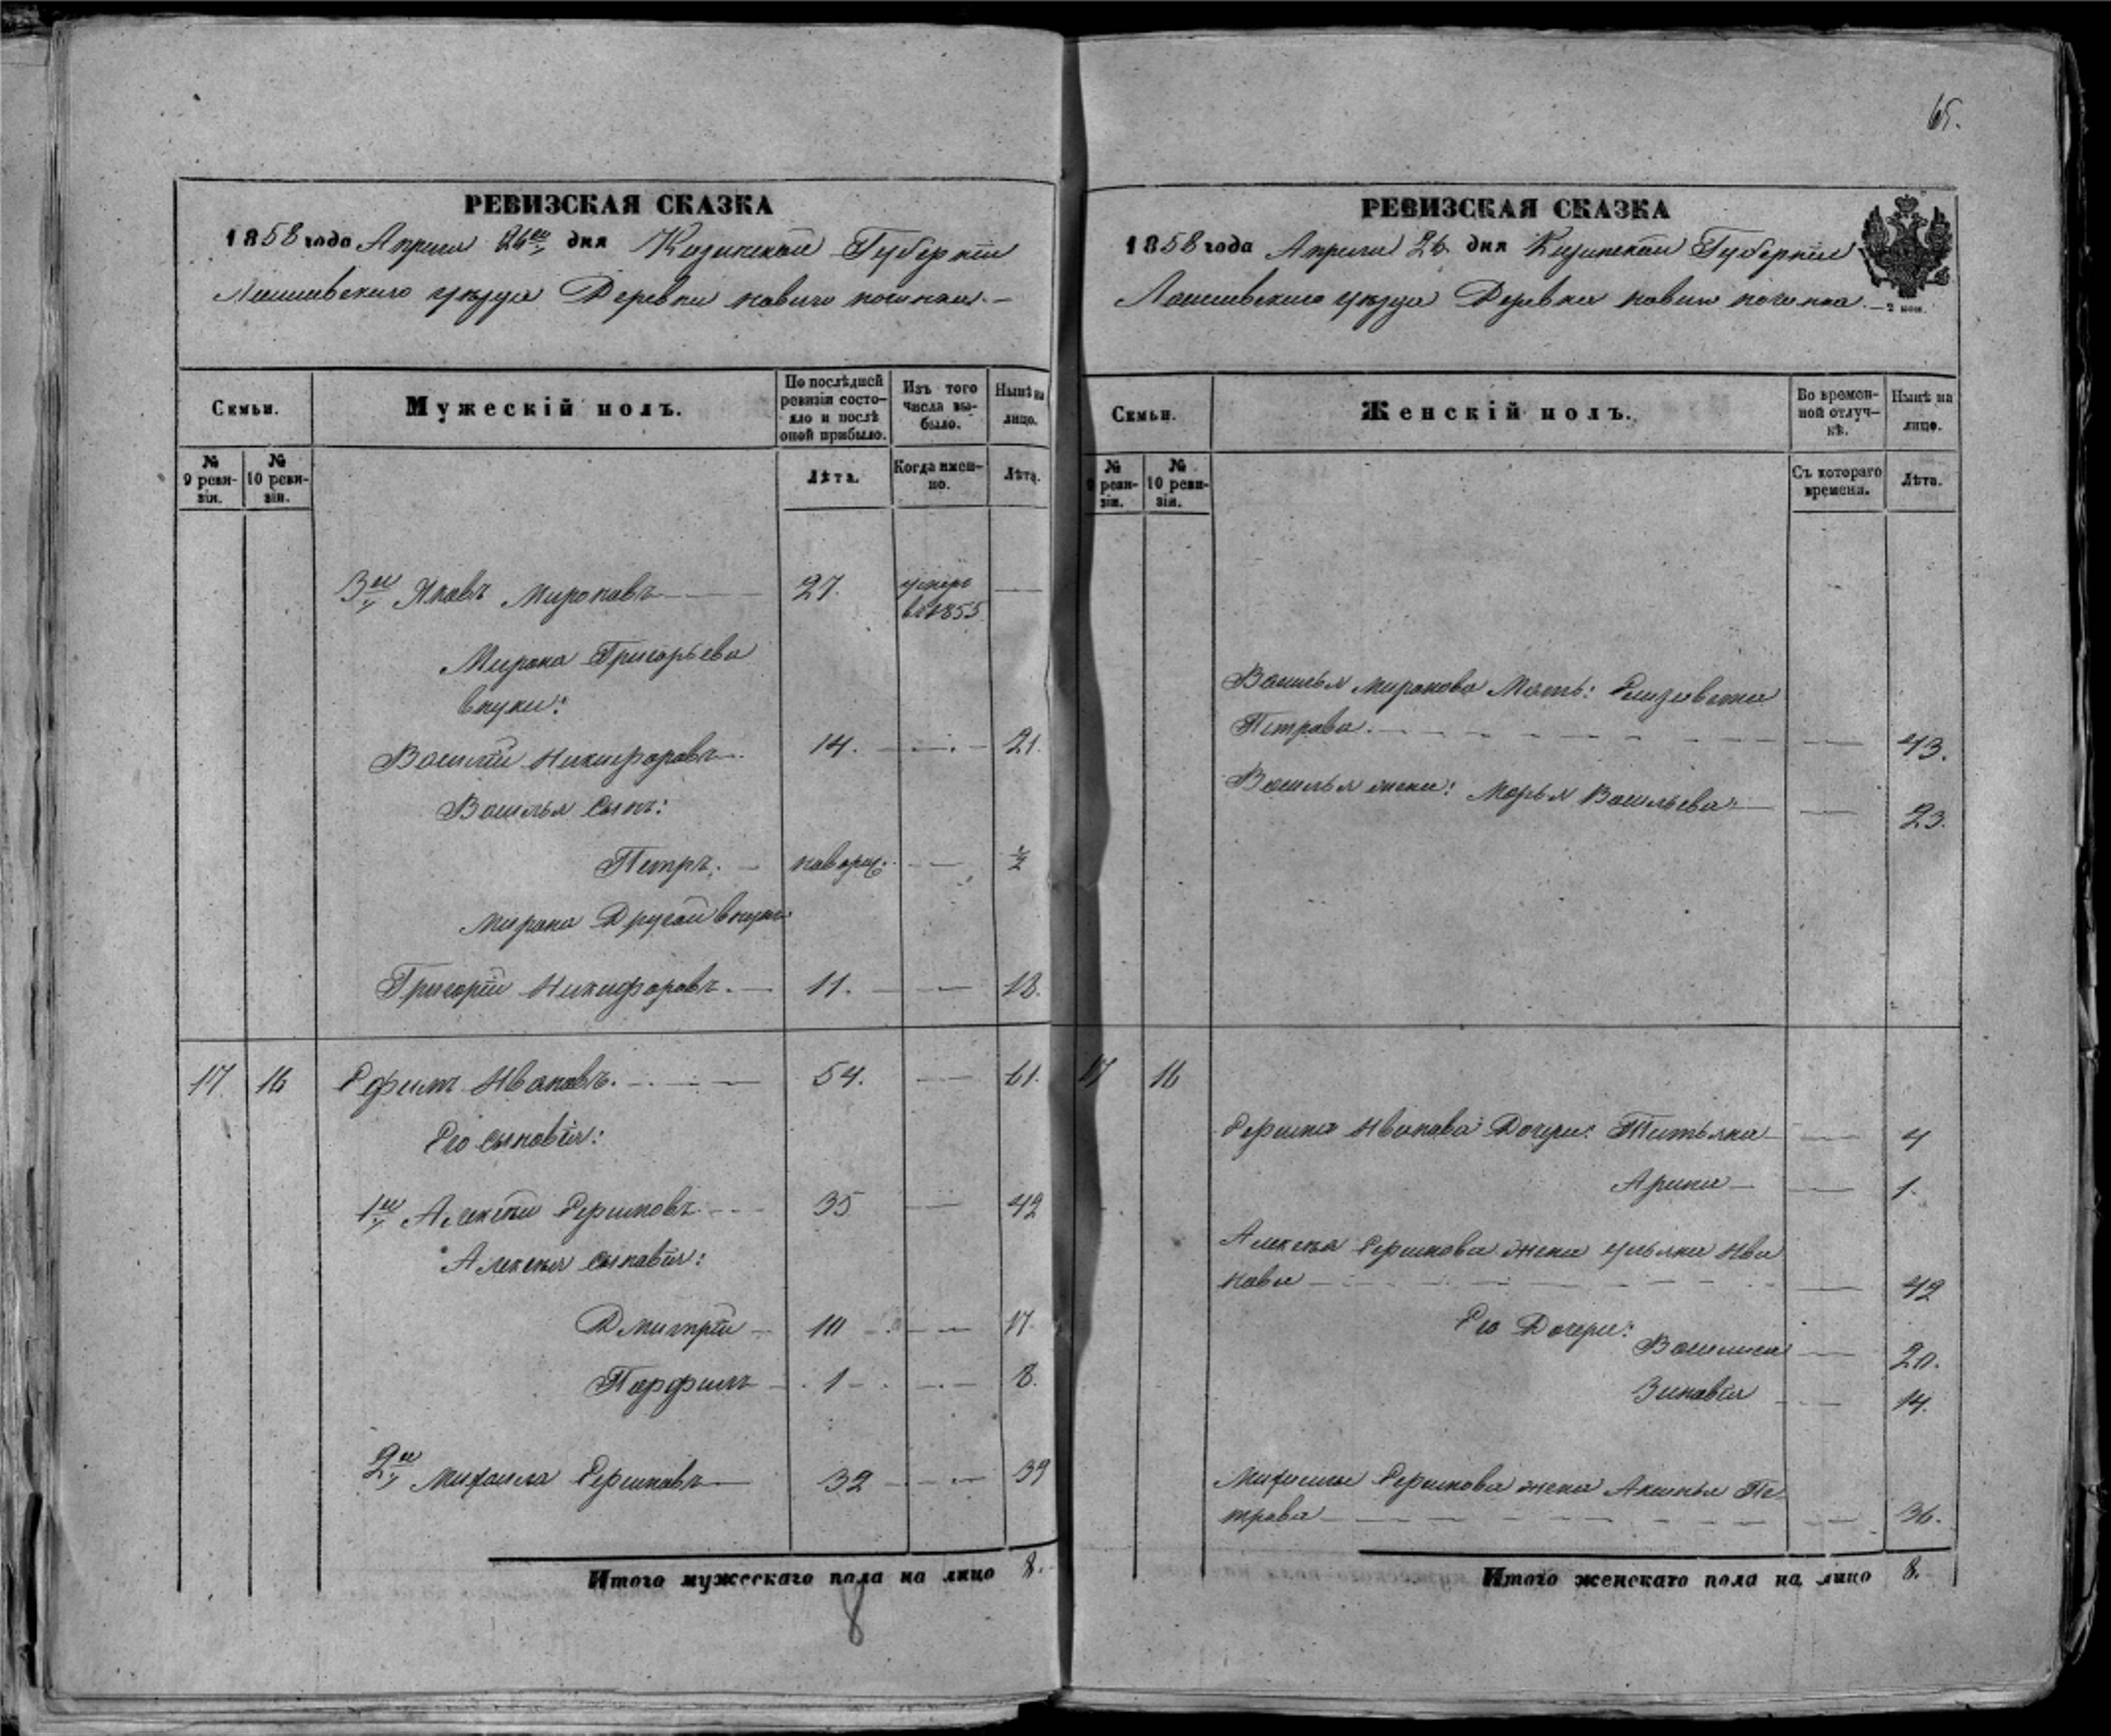 65.
РЕВИЗСКАЯ СКАЗКА
1858 года Апреля 26го дня Казанской Губерніи
Лаишевскаго уѣзда Деревни новаго починка.—
Семьи.
Мужескій полъ.
По послѣдней ревизіи состояло и послѣ оной прибыло.
Изъ того числа выбыло.
Нынѣ на лицо.
№ 9 ревизіи.
№ 10 ревизіи.
Лѣта.
Когда именно.
Лѣта.
3й Яковъ Мироновъ — 27. умеръ въ 1855 —
Мирона Григорьева
внуки:
Василій Никифоровъ. 14. — 21.
Василья сынъ:
Петръ. — новорож. — ½
Мирона Другой внукъ
Григорій Никифоровъ. — 11. — 18.
17. 16 Ефимъ Ивановъ. — 54. — 61.
Его сыновія:
1й Алексѣй Ефимовъ — 35 — 42
Алексѣя сыновія:
Дмитрій — 10 — 17.
Парфилъ — 1 — 8.
2й Михаила Ефимовъ — 32 — 39
Итого мужескаго пола на лицо 8.
8
РЕВИЗСКАЯ СКАЗКА
1858 года Апреля 26 дня Казанской Губерніи
Лаишевскаго уѣзда Деревни новаго починка. —
2 коп.
Семьи.
Женскій полъ.
Во временной отлучкѣ.
Нынѣ на лицо.
№ 9 ревизіи.
№ 10 ревизіи.
Съ котораго времени.
Лѣта.
Василья Миронова Мать: Елизавета
Петрова. — 43.
Василья жена: Марья Васильева — 23.
17 16
Ефима Иванова Дочери: Татьяна — 4
Арина — 1.
Алексѣя Ефимова жена Ульяна Ива
нова — 42
Его Дочери:
Василиса — 20.
Зиновія — 14.
Михаилы Ефимова жена Аксинья Пе
трова — 36.
Итого женскаго пола на лицо 8.